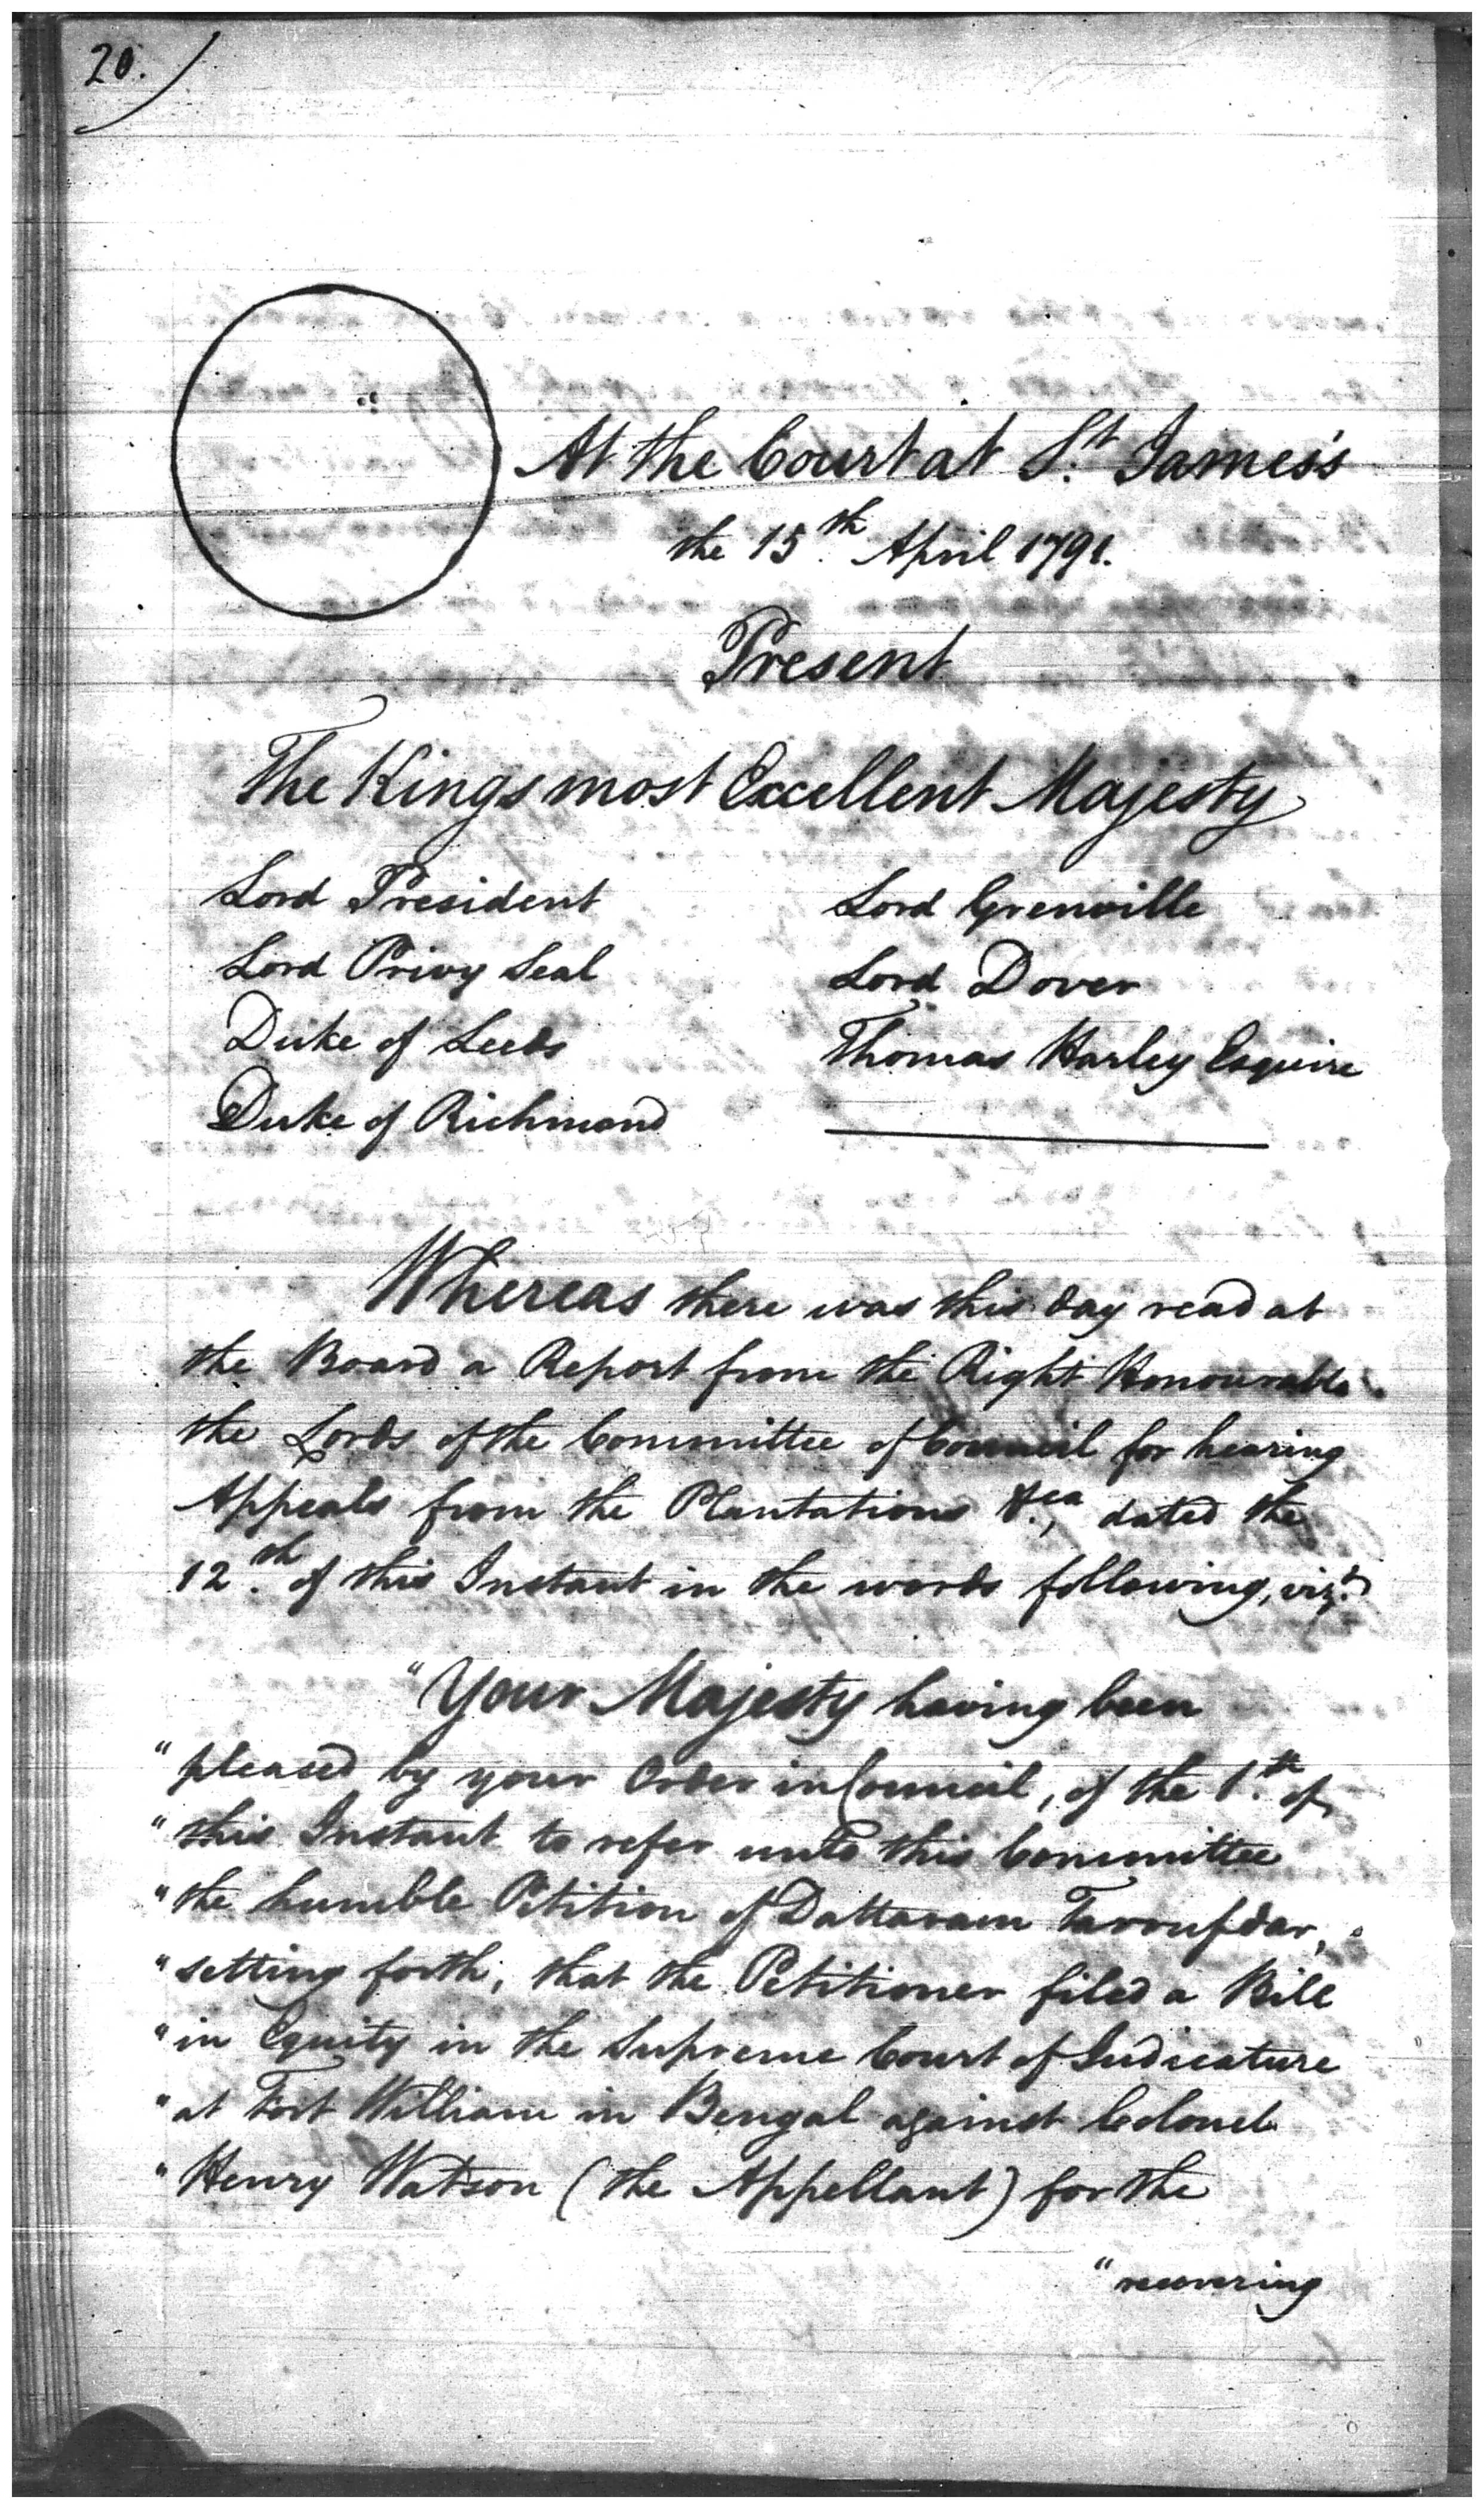 20.
At the Court at St. James's
the 15th. April 1791.
Present
The Kings most Excellent Majesty
Lord President
Lord Privy Seal
Duke of Leeds
Duke of Richmond
Lord Grenville
Lord Dover
Thomas Harley Esquire
Whereas there was this day read at
the Board a Report from the Right Honourable
the Lords of the Committee of Council for hearing
Appeals from the Plantations &ca., dated the
12th. of this Instant in the words following, vizt.
"Your Majesty having been
"pleased by your Order in Council, of the 1.th of
"this Instant to refer unto this Committee
"the humble Petition of Dattaram Tarrufdar,
"setting forth, that the Petitioner filed a Bill
"in Equity in the Supreme Court of Judicature
"at Fort William in Bengal against Colonel
"Henry Watson (the Appellant) for the
"recovering